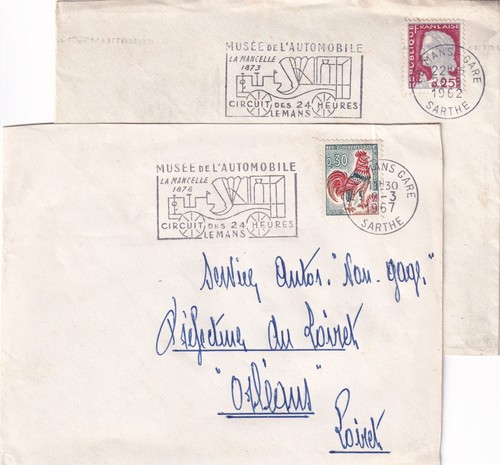 MUSÉE DE L'AUTOMOBILE
LA MANCELLE
1873
CIRCUIT DES 24 HEURES
LE MANS
REPUBLIQUE FRANÇAISE
0,25
MANS GARE
22H
1962
SARTHE
MUSÉE DE L'AUTOMOBILE
LA MANCELLE
1876
CIRCUIT DES 24 HEURES
LE MANS
0,30
MANS GARE
30
-3
1967
SARTHE
Service Autos. "Non-gage"
Préfecture du Loiret
"Orléans"
Loiret